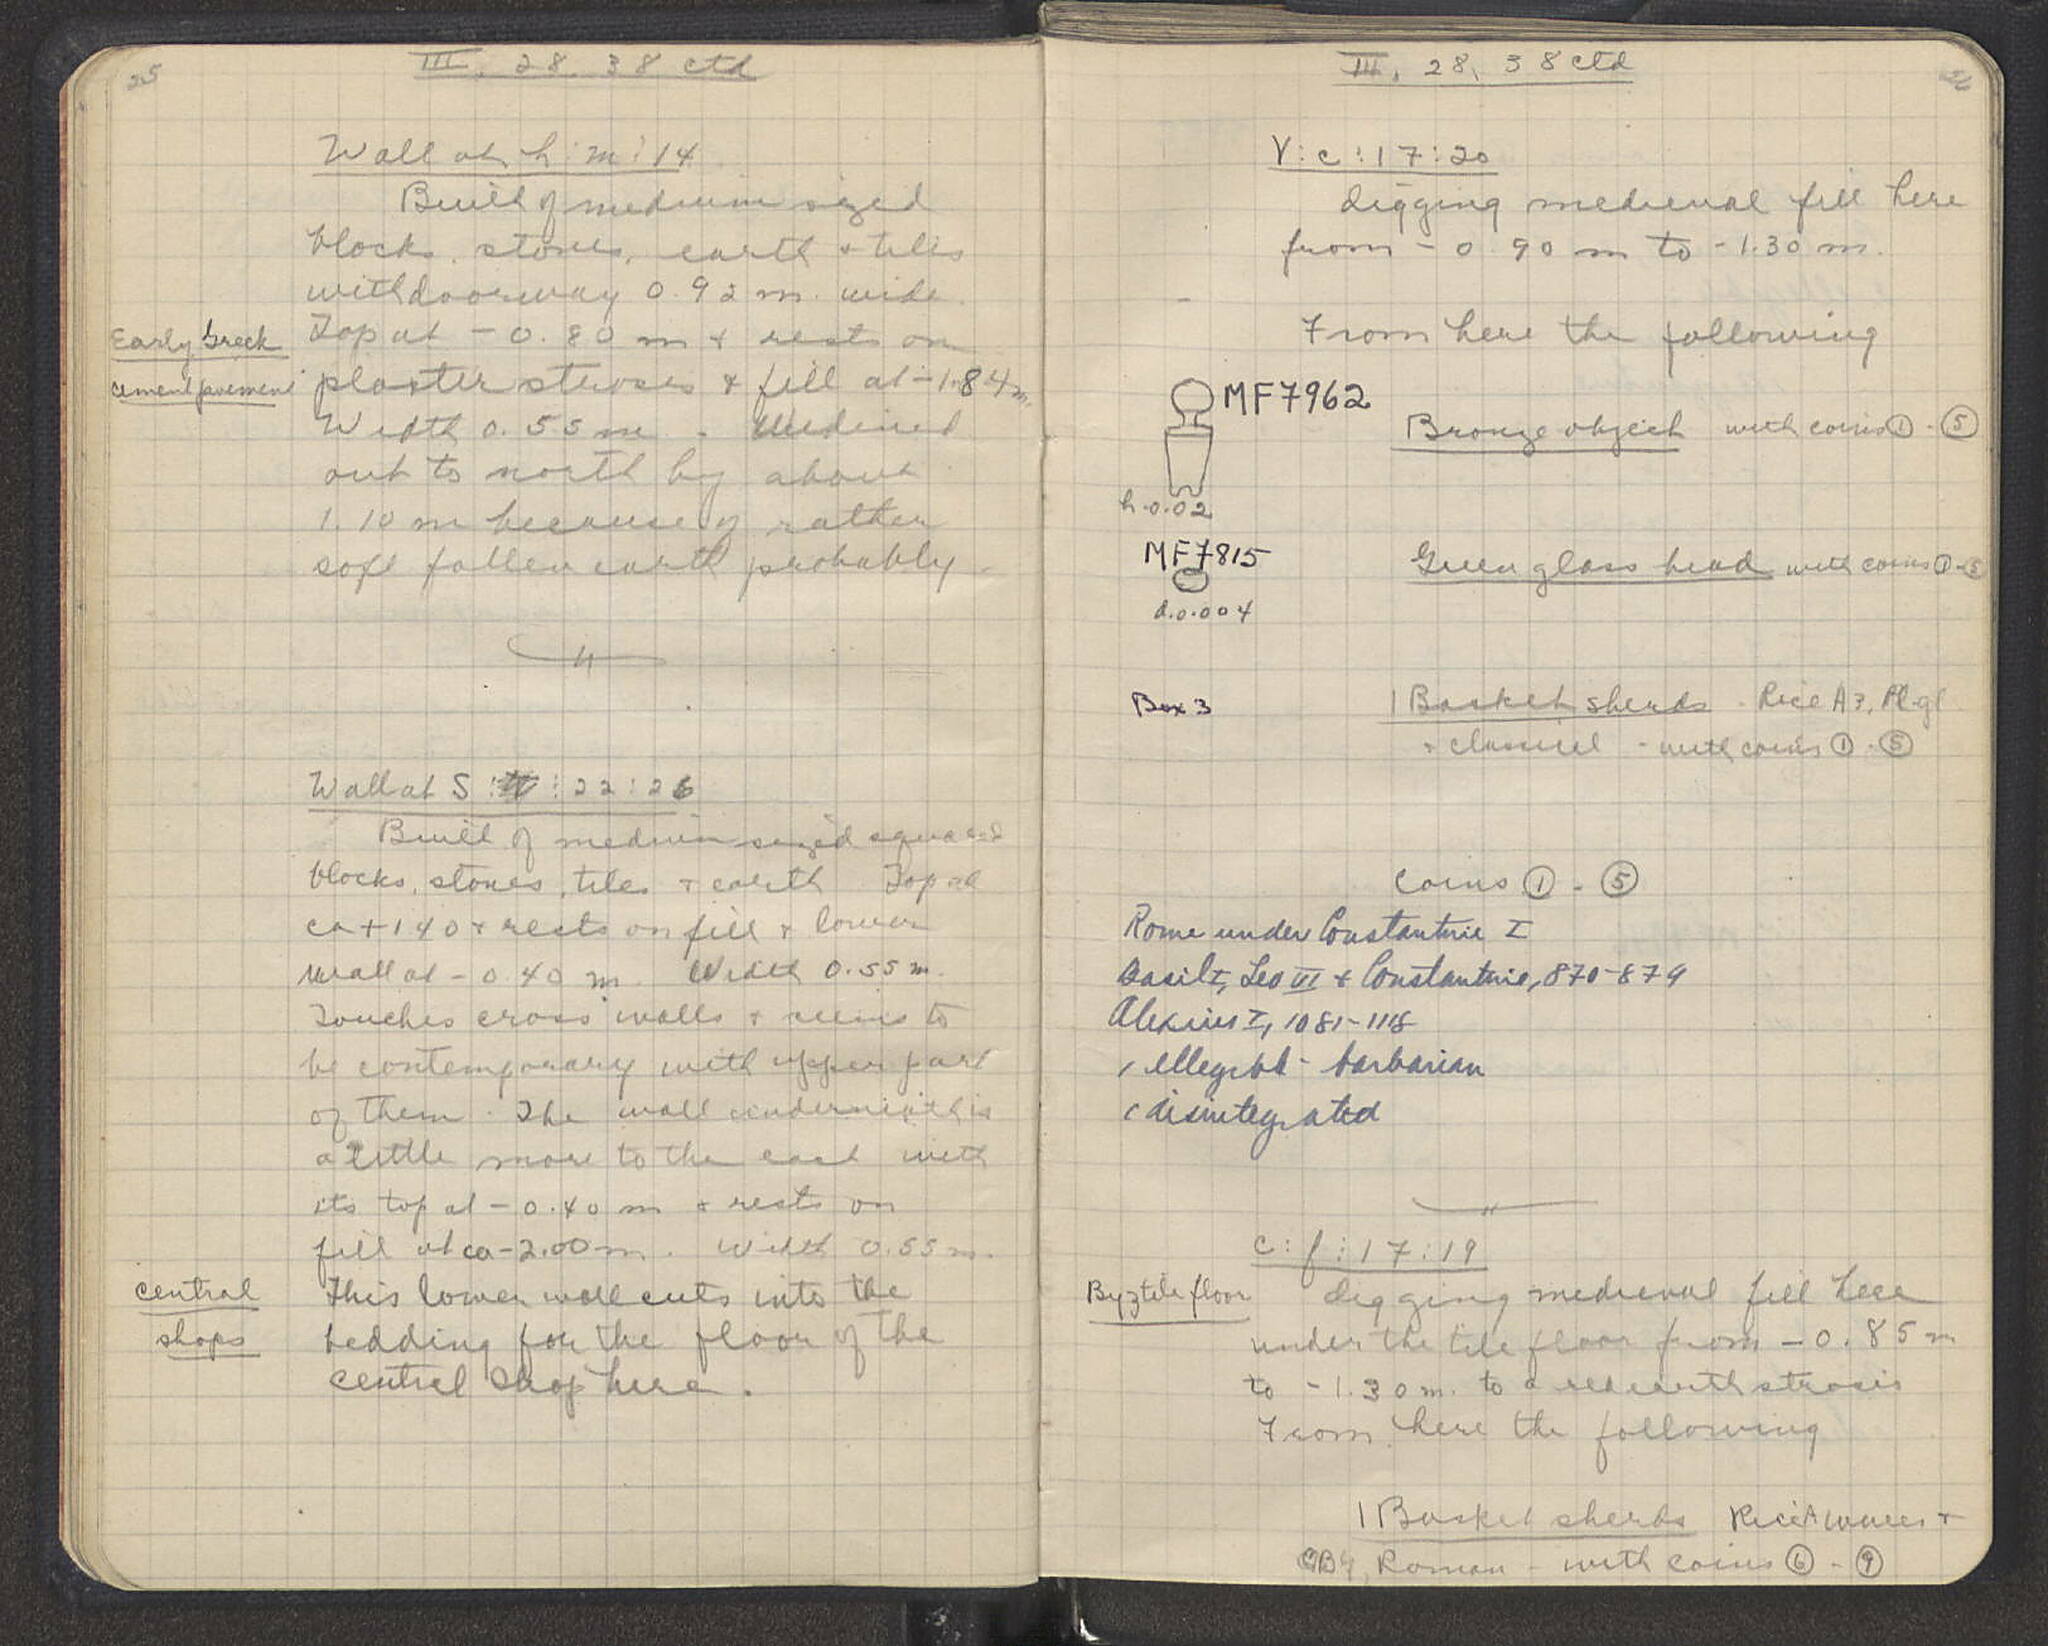 25
III, 28, 38 ctd
Wall at h:m:14
Built of medium sized
blocks, stones, earth + tiles
with doorway 0.92 m. wide.
Early Greek
cement pavement
Top at -0.80 m + rests on
plaster stroses + fill at -1.84 m.
Width 0.55 m.
out to north by about
1.10 m because of rather
soft fallen earth probably.
Wall at S: :22:26
Built of medium sized squared
blocks, stones, tiles + earth Top at
ca +140 + rests on fill + lower
wall at -0.40 m. Width 0.55 m.
Touches cross walls + seems to
be contemporary with upper part
of them. The wall underneath is
a little more to the east with
its top at -0.40 m + rests on
fill at ca -2.00 m. Width 0.55 m.
central
shops
This lower wall cuts into the
bedding for the floor of the
central shop here.
III, 28, 38 ctd
26
V:c:17:20
digging medieval fill here
from -0.90 m to -1.30 m.
From here the following
MF7962
Bronze object with coins ① - ⑤
h.0.02
MF7815
Green glass bead with coins ① - ⑤
d.0.004
Box 3
1 Basket sherds - Rice A?, Pl-gl
+ classical - with coins ① - ⑤
Coins ① - ⑤
Rome under Constantine I
Basil I, Leo VI + Constantine, 870-879
Alexius I, 1081-1118
1 illegible - barbarian
1 disintegrated
c:f:17:19
Byz tile floor
digging medieval fill here
under the tile floor from -0.85 m
to -1.30 m. to a red earth strosis
From here the following
1 Basket sherds Rice A wares +
Roman - with coins ⑥ - ⑨